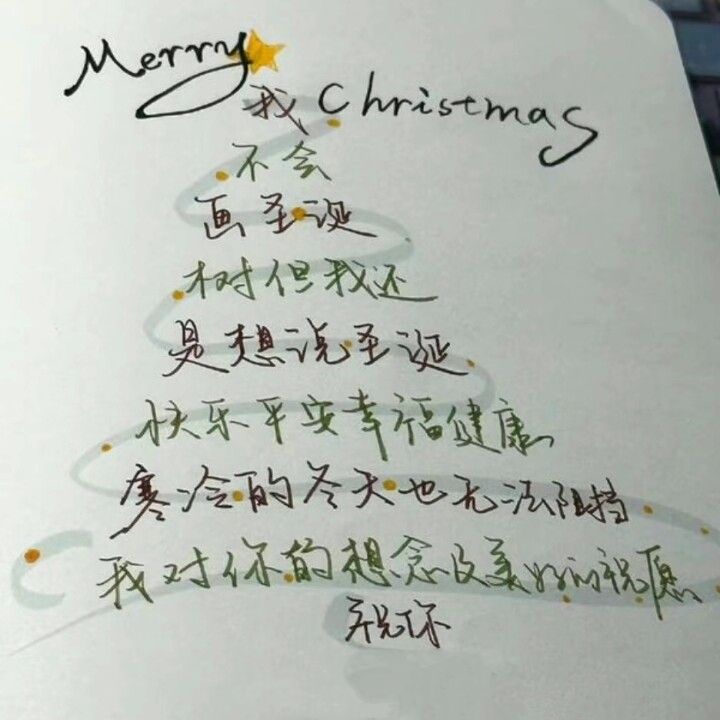 Merry
Christmas
我
不会
画圣诞
树但我还
是想说圣诞
快乐平安幸福健康
寒冷的冬天也无法阻挡
我对你的想念及美好的祝愿
祝你